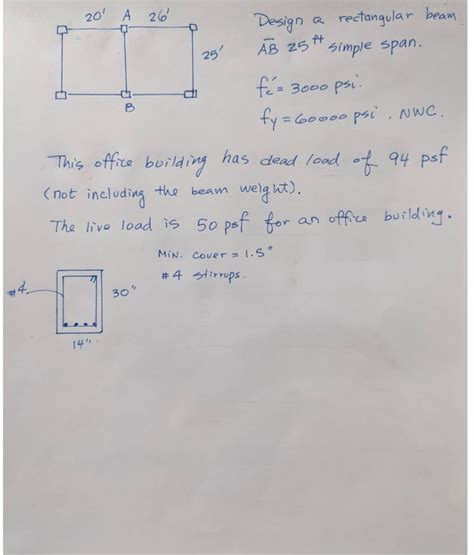 20' A 26'
25'
B
Design a rectangular beam
AB 25 ft simple span.
f'c = 3000 psi.
fy = 60000 psi. NWC.
This office building has dead load of 94 psf
(not including the beam weight).
The live load is 50 psf for an office building.
MIN. cover = 1.5"
#4 stirrups.
#4
30"
14"